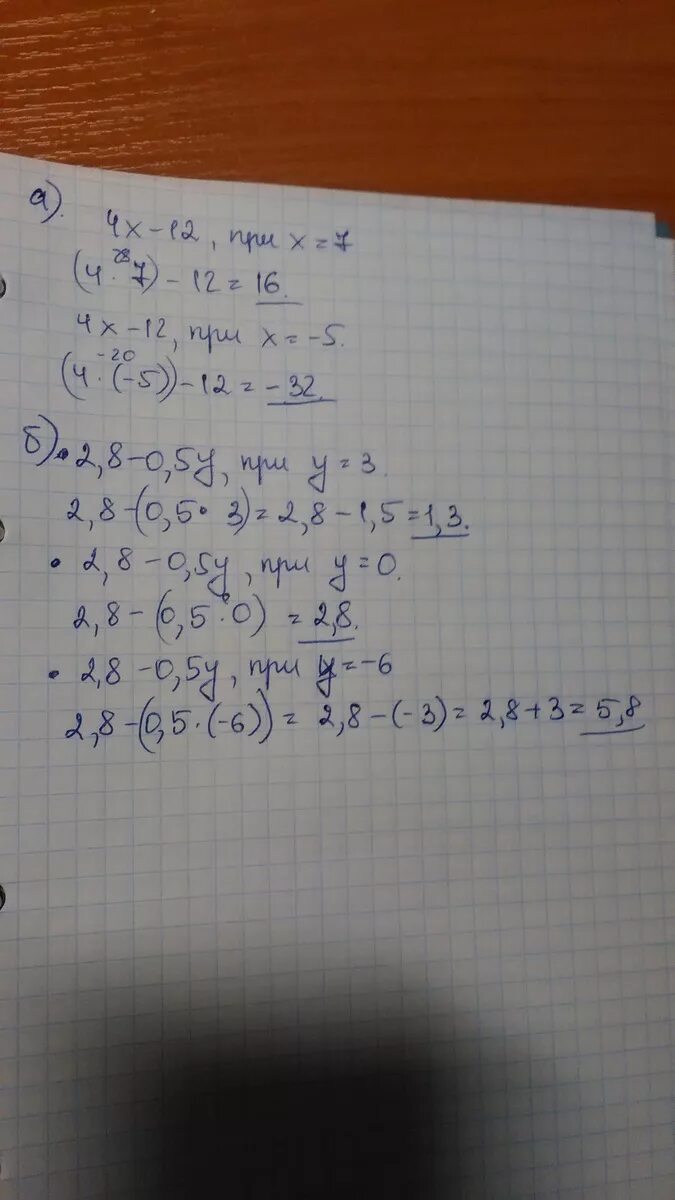 а).
4x-12, при x=7
28
(4·7)-12=16.
4x-12, при x=-5.
-20
(4·(-5))-12=-32.
б)• 2,8-0,5y, при y=3.
2,8-(0,5·3)=2,8-1,5=1,3.
• 2,8-0,5y, при y=0.
2,8-(0,5·0)=2,8.
• 2,8-0,5y, при y=-6
2,8-(0,5·(-6))=2,8-(-3)=2,8+3=5,8